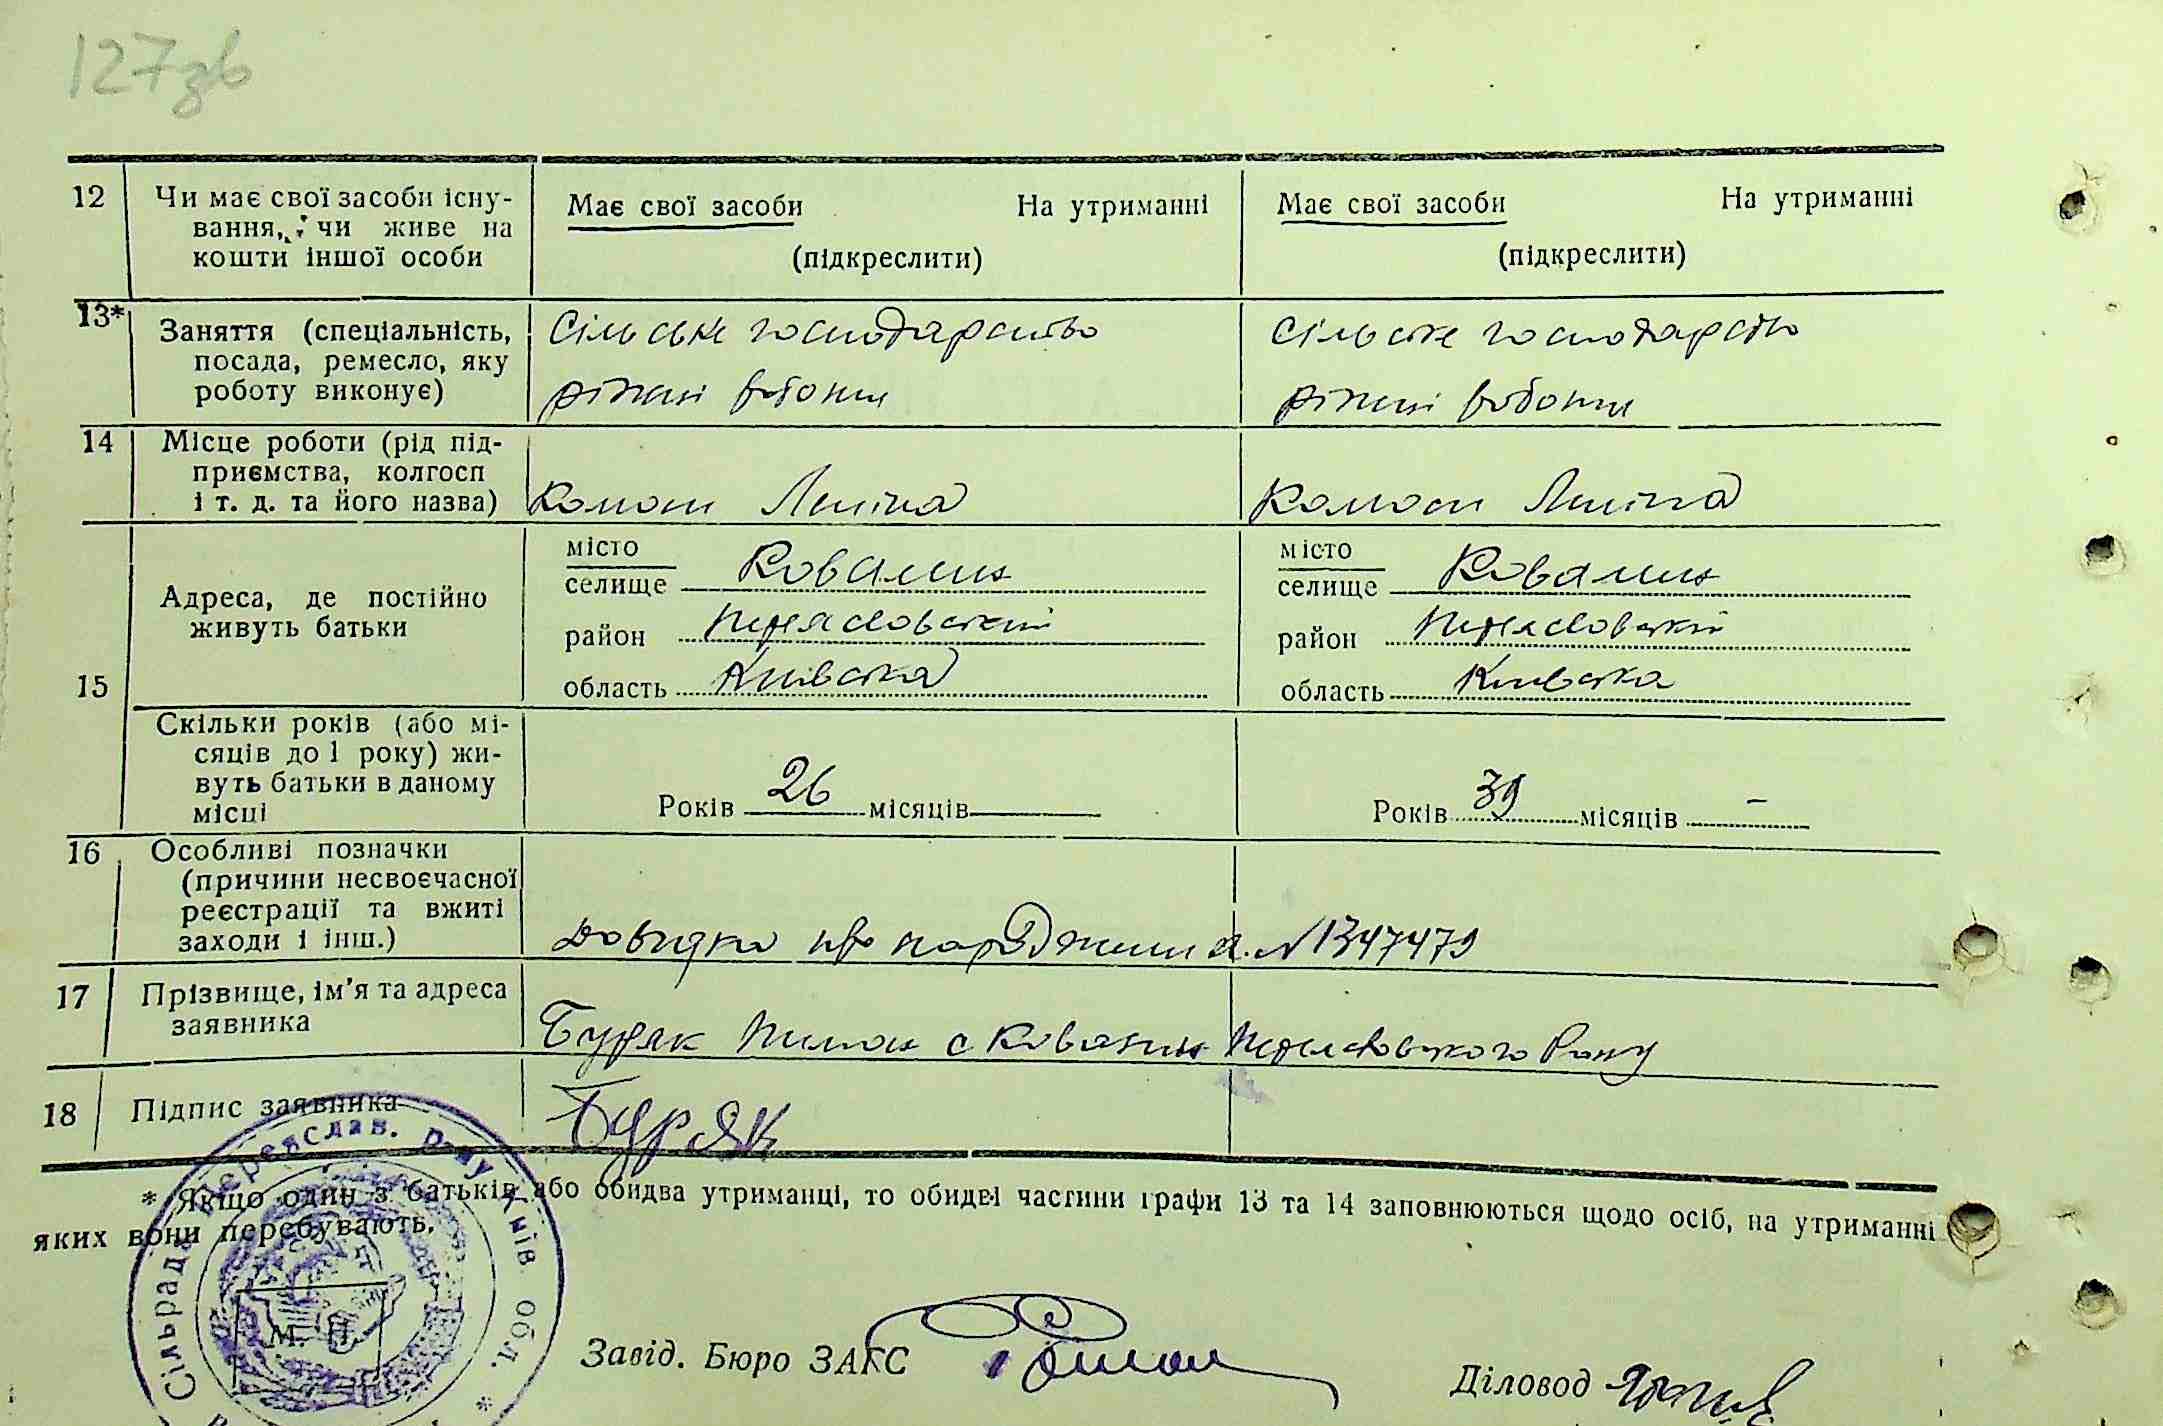 127зв
12 Чи має свої засоби існу-
вання, чи живе на
кошти іншої особи
Має свої засоби На утриманні
(підкреслити)
Має свої засоби На утриманні
(підкреслити)
13* Заняття (спеціальність,
посада, ремесло, яку
роботу виконує)
Сільське господарство
різні роботи
Сільське господарство
різні роботи
14 Місце роботи (рід під-
приємства, колгосп
і т. д. та його назва)
Колгосп Леніна
Колгосп Леніна
15 Адреса, де постійно
живуть батьки
місто
селище Ковалин
район Переяславський
область Київська
місто
селище Ковалин
район Переяславський
область Київська
Скільки років (або мі-
сяців до 1 року) жи-
вуть батьки в даному
місці
Років 26 місяців
Років 39 місяців –
16 Особливі позначки
(причини несвоєчасної
реєстрації та вжиті
заходи і інш.)
Довидка про народження №1347479
17 Прізвище, ім'я та адреса
заявника
Буряк с Ковалин Переяславського Рону
18 Підпис заявника
Буряк
* Якщо один з батьків або обидва утриманці, то обидві частини графи 13 та 14 заповнюються щодо осіб, на утриманні
яких вони перебувають.
Сільрада Переяслав. р-ну Київ обл. *
М. П.
Завід. Бюро ЗАГС
Діловод